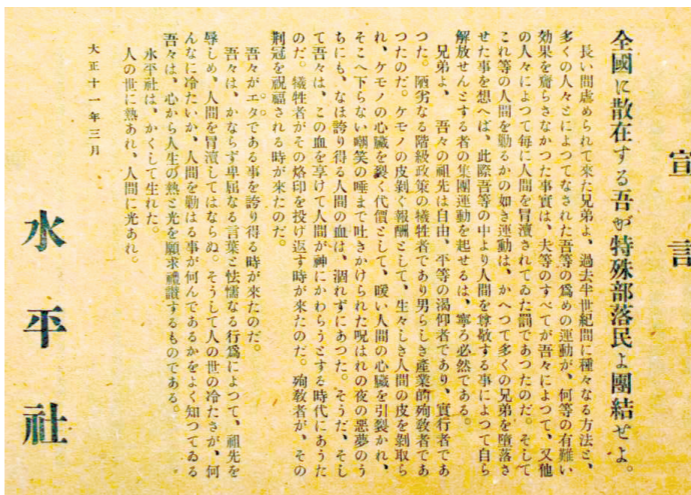 宣言
全國に散在する吾が特殊部落民よ團結せよ。
長い間虐められて來た兄弟よ、過去半世紀間に種々なる方法と、
多くの人々とによつてなされた吾等の爲めの運動が、何等の有難い
効果を齎らさなかつた事實は、夫等のすべてが吾々によつて、又他
の人々によつて毎に人間を冐瀆されてゐた罰であつたのだ。そして
これ等の人間を勦るかの如き運動は、かへつて多くの兄弟を堕落さ
せた事を想へば、此際吾等の中より人間を尊敬する事によつて自ら
解放せんとする者の集團運動を起せるは、寧ろ必然である。
兄弟よ、吾々の祖先は自由、平等の渇仰者であり、實行者であ
つた。陋劣なる階級政策の犠牲者であり男らしき産業的殉敎者であ
つたのだ。ケモノの皮剝ぐ報酬として、生々しき人間の皮を剝取ら
れ、ケモノの心臓を裂く代價として、暖い人間の心臓を引裂かれ、
そこへ下らない嘲笑の唾まで吐きかけられた呪はれの夜の惡夢のう
ちにも、なほ誇り得る人間の血は、涸れずにあつた。そうだ、そし
て吾々は、この血を享けて人間が神にかわらうとする時代にあうた
のだ。犠牲者がその烙印を投げ返す時が來たのだ。殉敎者が、その
荆冠を祝福される時が來たのだ。
吾々がエタである事を誇り得る時が來たのだ。
吾々は、かならず卑屈なる言葉と怯懦なる行爲によつて、祖先を
辱しめ、人間を冐瀆してはならぬ。そうして人の世の冷たさが、何
んなに冷たいか、人間を勦はる事が何んであるかをよく知つてゐる
吾々は、心から人生の熱と光を願求禮讃するものである。
水平社は、かくして生れた。
人の世に熱あれ、人間に光あれ。
大正十一年三月
水平社